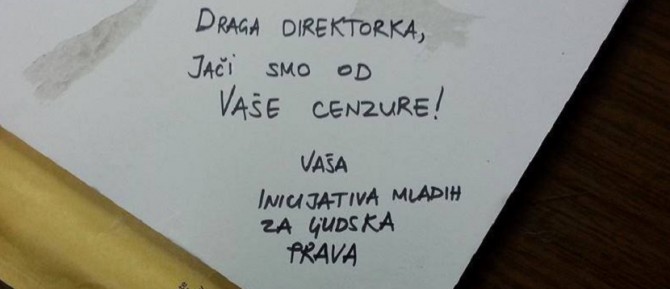 DRAGA DIREKTORKA,
JAČI SMO OD
VAŠE CENZURE!
VAŠA
INICIJATIVA MLADIH
ZA LJUDSKA
PRAVA